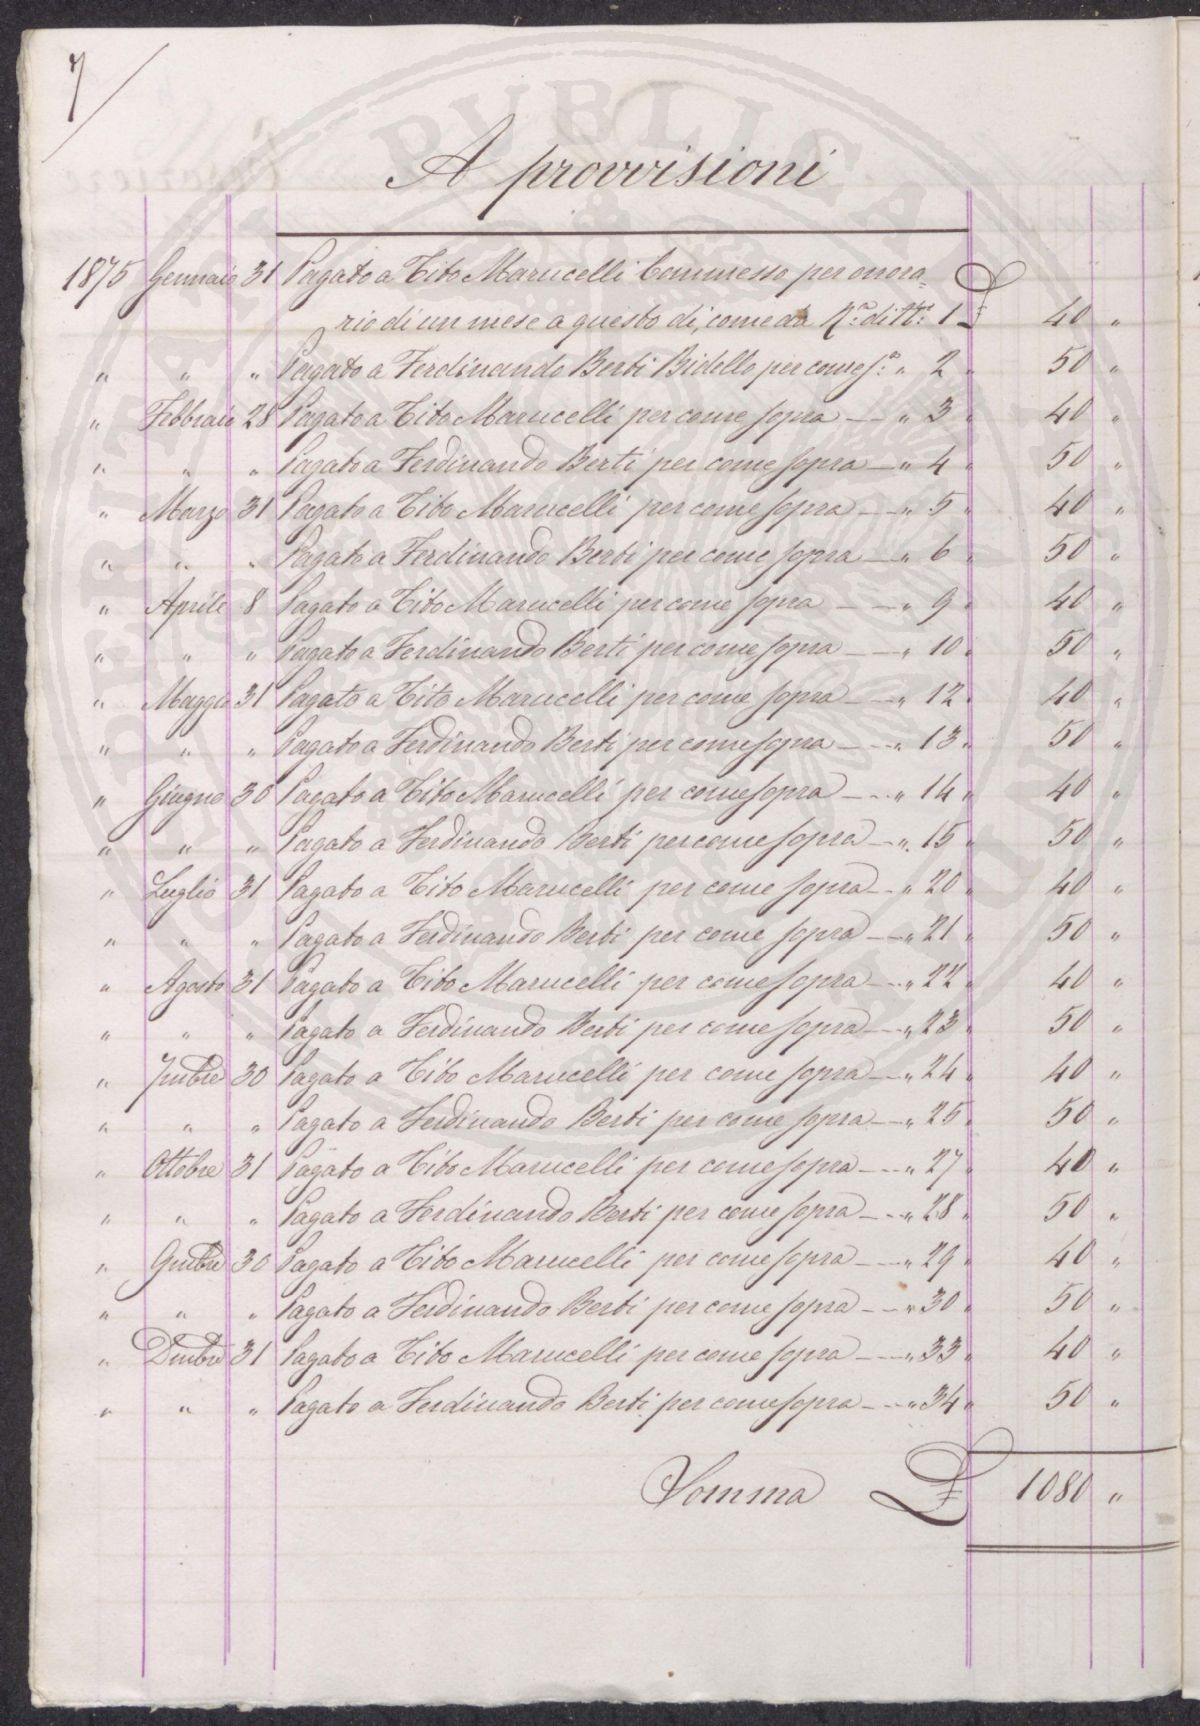 7
A provvisioni
1875 Gennaio 31 Pagato a Tito Marucelli Commesso per onora=
rio di un mese a questo dì, come da R.ta di N.o 1 £ 40 "
" " " Pagato a Ferdinando Berti Bidello per come S.a " 2 " 50 "
" Febbraio 28 Pagato a Tito Marucelli per come sopra — " 3 " 40 "
" " " Pagato a Ferdinando Berti per come sopra — " 4 " 50 "
" Marzo 31 Pagato a Tito Marucelli per come sopra — " 5 " 40 "
" " " Pagato a Ferdinando Berti per come sopra — " 6 " 50 "
" Aprile 8 Pagato a Tito Marucelli per come sopra — " 9 " 40 "
" " " Pagato a Ferdinando Berti per come sopra — " 10 " 50 "
" Maggio 31 Pagato a Tito Marucelli per come sopra — " 12 " 40 "
" " " Pagato a Ferdinando Berti per come sopra — " 13 " 50 "
" Giugno 30 Pagato a Tito Marucelli per come sopra — " 14 " 40 "
" " " Pagato a Ferdinando Berti per come sopra — " 15 " 50 "
" Luglio 31 Pagato a Tito Marucelli per come sopra — " 20 " 40 "
" " " Pagato a Ferdinando Berti per come sopra — " 21 " 50 "
" Agosto 31 Pagato a Tito Marucelli per come sopra — " 22 " 40 "
" " " Pagato a Ferdinando Berti per come sopra — " 23 " 50 "
" 7mbre 30 Pagato a Tito Marucelli per come sopra — " 24 " 40 "
" " " Pagato a Ferdinando Berti per come sopra — " 25 " 50 "
" Ottobre 31 Pagato a Tito Marucelli per come sopra — " 27 " 40 "
" " " Pagato a Ferdinando Berti per come sopra — " 28 " 50 "
" 9mbre 30 Pagato a Tito Marucelli per come sopra — " 29 " 40 "
" " " Pagato a Ferdinando Berti per come sopra — " 30 " 50 "
" Dmbre 31 Pagato a Tito Marucelli per come sopra — " 33 " 40 "
" " " Pagato a Ferdinando Berti per come sopra — " 34 " 50 "
Somma £ 1080 "